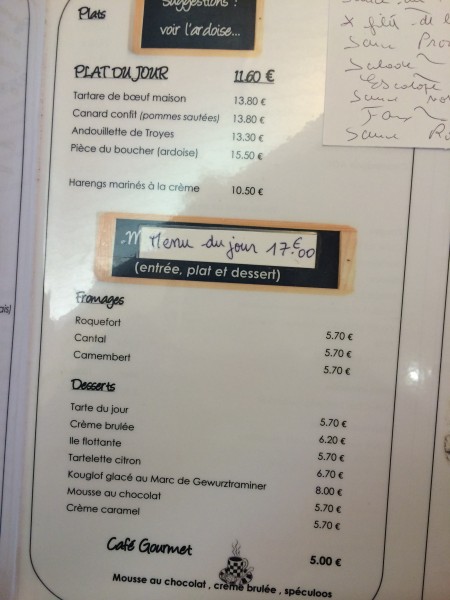 Plats
Suggestions :
voir l'ardoise...
PLAT DU JOUR 11.60 €
Tartare de bœuf maison 13.80 €
Canard confit (pommes sautées) 13.80 €
Andouillette de Troyes 13.30 €
Pièce du boucher (ardoise) 15.50 €
Harengs marinés à la crème 10.50 €
Menu du jour 17€00
(entrée, plat et dessert)
Fromages
Roquefort 5.70 €
Cantal 5.70 €
Camembert 5.70 €
Desserts
Tarte du jour 5.70 €
Crème brulée 6.20 €
Ile flottante 5.70 €
Tartelette citron 6.70 €
Kouglof glacé au Marc de Gewurztraminer 8.00 €
Mousse au chocolat 5.70 €
Crème caramel 5.70 €
Café Gourmet 5.00 €
Mousse au chocolat , crème brulée , spéculoos
Salade
Escalope